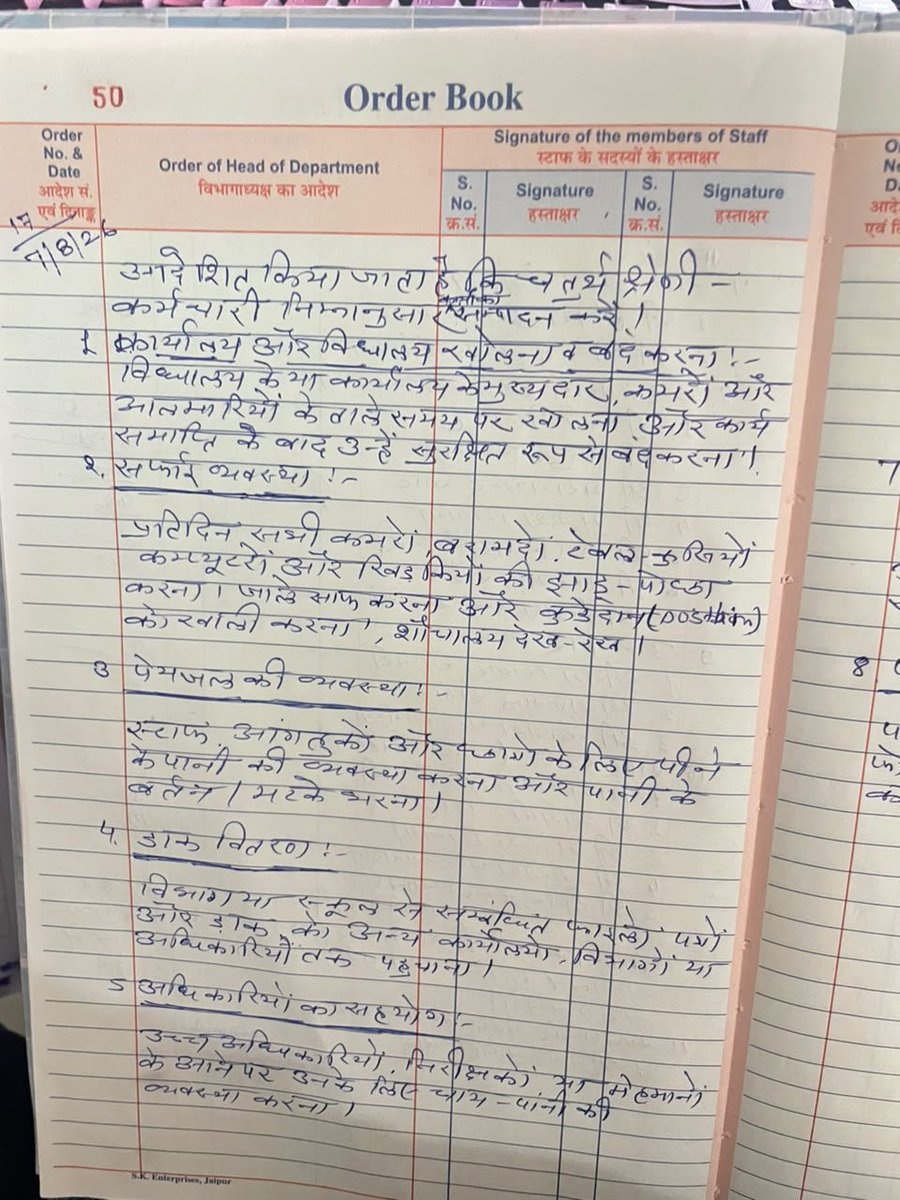 50
Order Book
Order No. & Date
आदेश सं. एवं दिनाङ्क
Order of Head of Department
विभागाध्यक्ष का आदेश
Signature of the members of Staff
स्टाफ के सदस्यों के हस्ताक्षर
S. No. क्र.सं.
Signature हस्ताक्षर
S. No. क्र.सं.
Signature हस्ताक्षर
7/8/26
आदेशित किया जाता है कि चतुर्थ श्रेणी -
कर्मचारी निम्नानुसार करें।
1. कार्यालय और विद्यालय खोलना व बंद करना :-
विध्यालय के या कार्यालय के मुख्यदार, कमरों और
आलमारियों के ताले समय पर खोलना, और कार्य
समाप्ति के बाद उन्हें सुरक्षित रूप से बंद करना।
2. सफाई व्यवस्था :-
प्रतिदिन सभी कमरों, बरामदों, टेबल-कुर्सियों
कम्प्यूटरों और खिड़कियों की झाड़-पोंछ
करना। जाले साफ करना और कुड़ेदान
को खाली करना, शौचालय देख-रेख।
3 पेयजल की व्यवस्था :-
स्टाफ, आंगतुकों और छात्रों के लिए पीने
के पानी की व्यवस्था करना और पानी के
बर्तन / मटके भरना।
4. डाक वितरण :-
विभाग या स्कूल से सम्बंधित फाइलों, पत्रों
और डाक को अन्य कार्यालयों, विभागों या
अधिकारियों तक पहुचाना।
5 अधिकारियों का सहयोग :-
उच्च अधिकारियों, निरीक्षकों या मेहमानों
के आने पर उनके लिए चाय-पानी की
व्यवस्था करना।
S.K. Enterprises, Jaipur
7
8